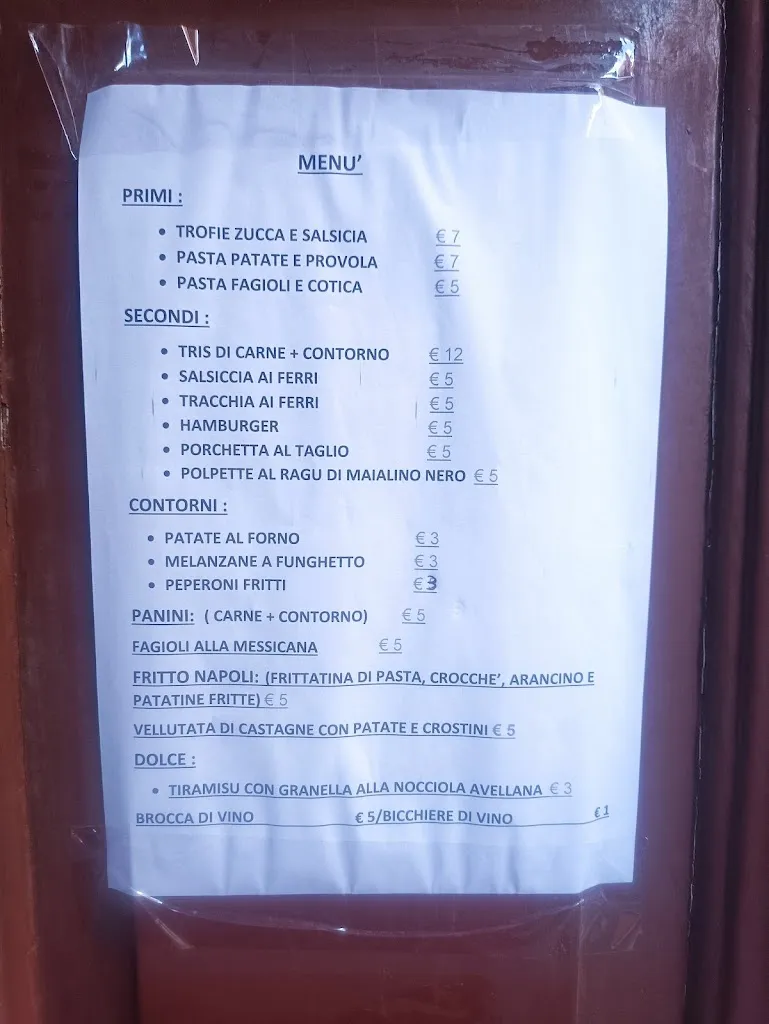 MENU'
PRIMI :
• TROFIE ZUCCA E SALSICIA € 7
• PASTA PATATE E PROVOLA € 7
• PASTA FAGIOLI E COTICA € 5
SECONDI :
• TRIS DI CARNE + CONTORNO € 12
• SALSICCIA AI FERRI € 5
• TRACCHIA AI FERRI € 5
• HAMBURGER € 5
• PORCHETTA AL TAGLIO € 5
• POLPETTE AL RAGU DI MAIALINO NERO € 5
CONTORNI :
• PATATE AL FORNO € 3
• MELANZANE A FUNGHETTO € 3
• PEPERONI FRITTI € 3
PANINI: ( CARNE + CONTORNO) € 5
FAGIOLI ALLA MESSICANA € 5
FRITTO NAPOLI: (FRITTATINA DI PASTA, CROCCHE', ARANCINO E
PATATINE FRITTE) € 5
VELLUTATA DI CASTAGNE CON PATATE E CROSTINI € 5
DOLCE :
• TIRAMISU CON GRANELLA ALLA NOCCIOLA AVELLANA € 3
BROCCA DI VINO € 5/BICCHIERE DI VINO € 1